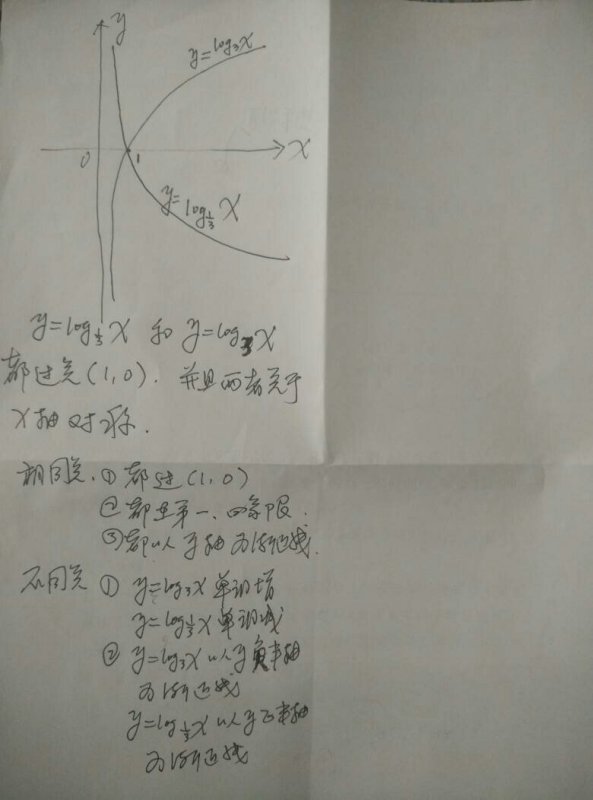 y
y=log₃x
0
1
x
y=log⅓x
y=log⅓x 和 y=log₃x
都过点(1,0). 并且两者关于
x轴对称.
相同点. ① 都过(1,0)
② 都在第一、四象限.
③ 都以y轴为渐近线.
不同点 ① y=log₃x 单调增
y=log⅓x 单调减
② y=log₃x 以y负半轴
为渐近线
y=log⅓x 以y正半轴
为渐近线